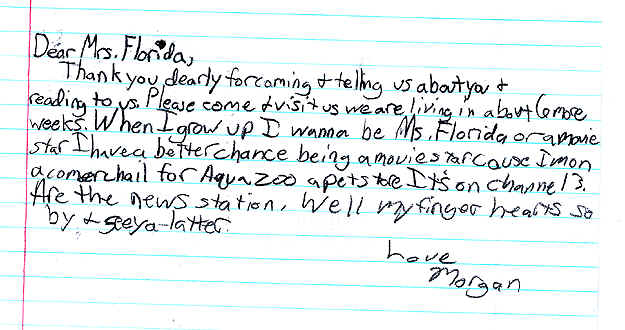 Dear Mrs. Florida,
Thank you dearly for coming & telling us about you &
reading to us. Please come & visit us we are living in about 6 more
weeks. When I grow up I wanna be Ms. Florida or a movie
star I have a better chance being a movie star cause I'm on
a comerchail for Aqua Zoo a pet store It's on channel 3.
Are the news station. Well my finger hearts so
by & seeya-latter.
Love
Morgan